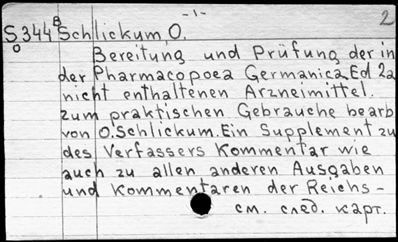 -1-
2
S344 B Schlickum, O.
O
Bereitung und Prüfung der in
der Pharmacopoea Germanica Ed 2a
nicht enthaltenen Arzneimittel.
zum praktischen Gebrauche bearb
von O. Schlickum. Ein Supplement zu
des Verfassers Kommentar wie
auch zu allen anderen Ausgaben
und Kommentaren der Reichs-
см. след. карт.